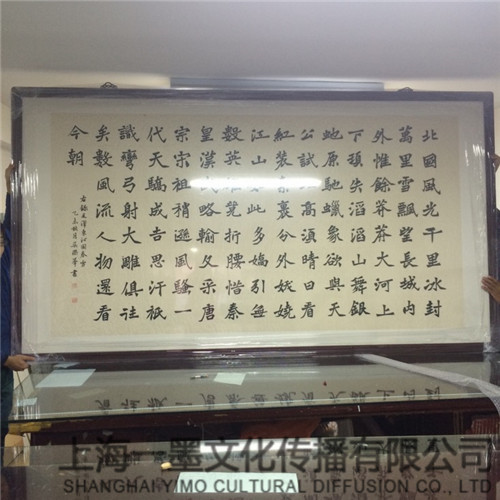 北國風光千里冰封
萬里雪飄望長城內
外惟餘莽莽大河上
下頓失滔滔山舞銀
蛇原馳蠟象欲與天
公試比高須晴日看
紅裝素裹分外妖嬈
江山如此多嬌引無
數英雄競折腰惜秦
皇漢武略輸文采唐
宗宋祖稍遜風騷一
代天驕成吉思汗祇
識彎弓射大雕俱往
矣數風流人物還看
今朝
右錄毛澤東沁園春雪
上海一墨文化传播有限公司
SHANGHAI YIMO CULTURAL DIFFUSION CO., LTD